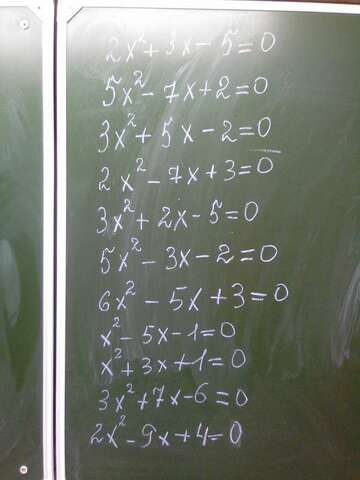 2x² + 3x - 5 = 0
5x² - 7x + 2 = 0
3x² + 5x - 2 = 0
2x² - 7x + 3 = 0
3x² + 2x - 5 = 0
5x² - 3x - 2 = 0
6x² - 5x + 3 = 0
x² - 5x - 1 = 0
x² + 3x + 1 = 0
3x² + 7x - 6 = 0
2x² - 9x + 4 = 0